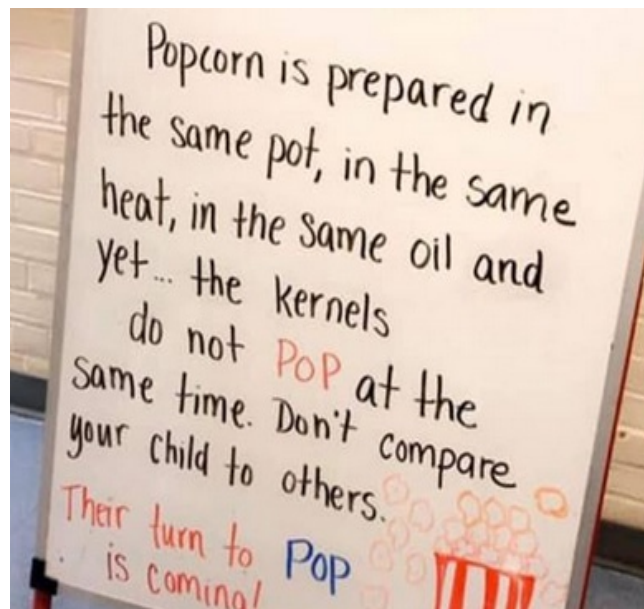 Popcorn is prepared in
the same pot, in the same
heat, in the same oil and
yet... the kernels
do not POP at the
same time. Don't compare
your child to others.
Their turn to POP
is coming!